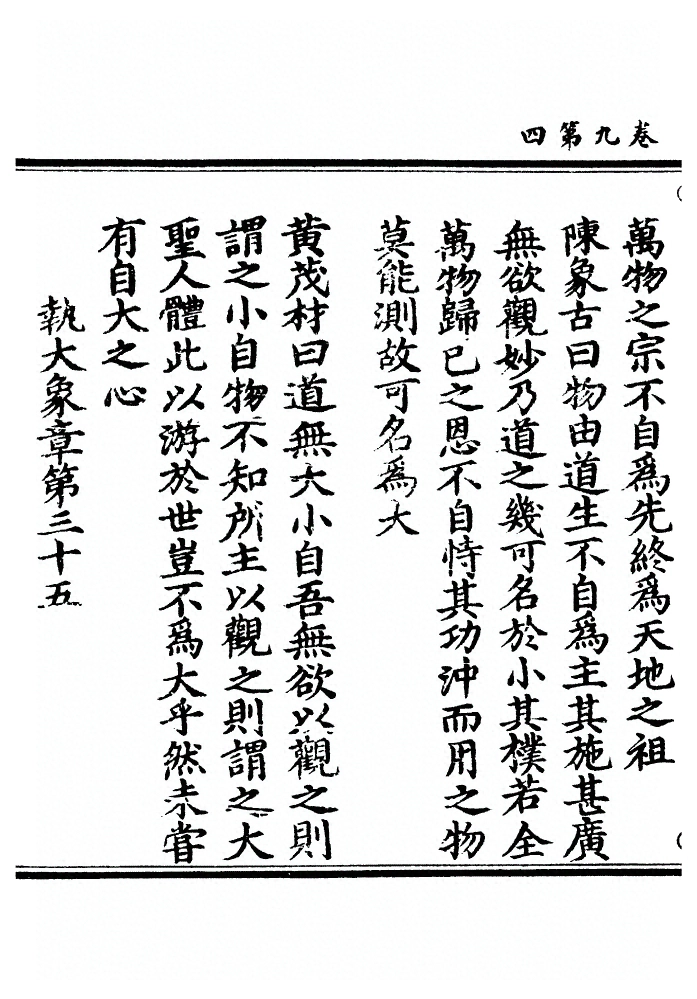 卷九第四
萬物之宗不自爲先終爲天地之祖
陳象古曰物由道生不自爲主其施甚廣
無欲觀妙乃道之幾可名於小其樸若全
萬物歸已之恩不自恃其功沖而用之物
莫能測故可名爲大
黃茂材曰道無大小自吾無欲以觀之則
謂之小自物不知所主以觀之則謂之大
聖人體此以游於世豈不爲大乎然未嘗
有自大之心
執大象章第三十五